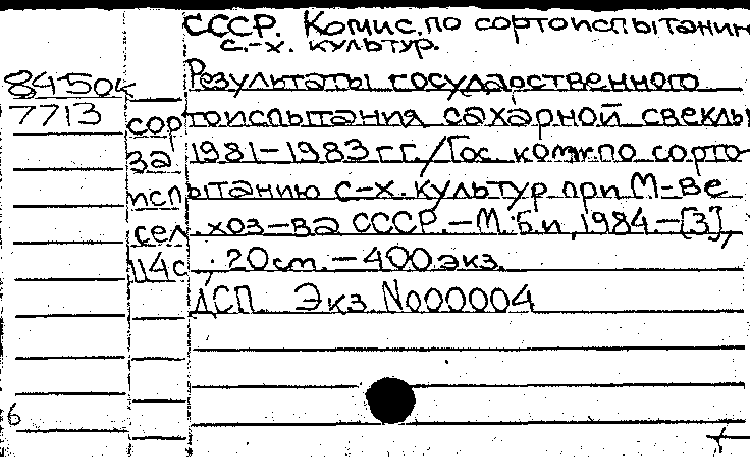 СССР. Комис. по сортоиспытанию
с.-х. культур.
84-50к Результаты государственного
7713 сортоиспытания сахарной свеклы
за 1981-1983 гг. / Гос. комис. по сорто-
испытанию с-х. культур при М-ве
сел. хоз-ва СССР. - М.: Б.и, 1984. - [3],
114с.; 20см. - 400 экз.
ДСП. Экз. N000004
6